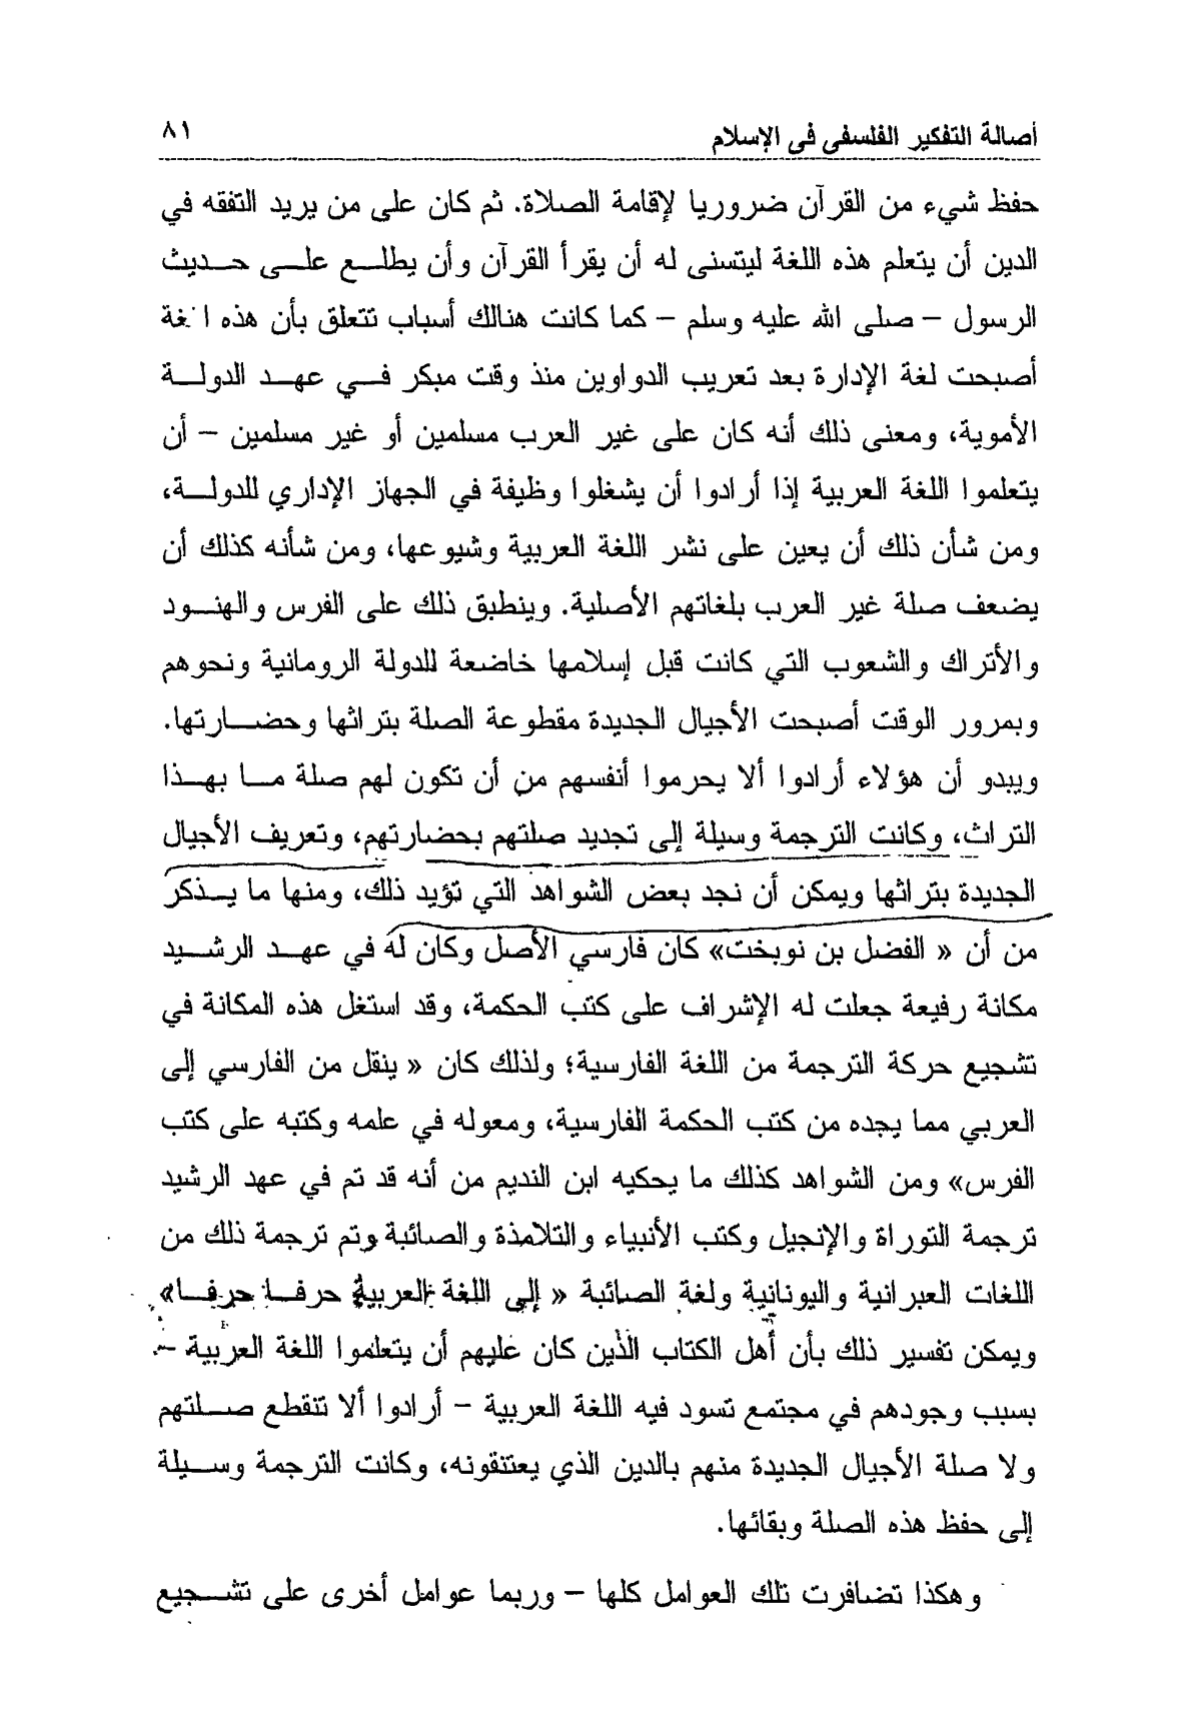 أصالة التفكير الفلسفى فى الإسلام ٨١
حفظ شيء من القرآن ضروريا لإقامة الصلاة. ثم كان على من يريد التفقه في
الدين أن يتعلم هذه اللغة ليتسنى له أن يقرأ القرآن وأن يطلع على حديث
الرسول – صلى الله عليه وسلم – كما كانت هنالك أسباب تتعلق بأن هذه
أصبحت لغة الإدارة بعد تعريب الدواوين منذ وقت مبكر في عهد الدولة
الأموية، ومعنى ذلك أنه كان على غير العرب مسلمين أو غير مسلمين – أن
يتعلموا اللغة العربية إذا أرادوا أن يشغلوا وظيفة في الجهاز الإداري للدولة،
ومن شأن ذلك أن يعين على نشر اللغة العربية وشيوعها، ومن شأنه كذلك أن
يضعف صلة غير العرب بلغاتهم الأصلية. وينطبق ذلك على الفرس والهنود
والأتراك والشعوب التي كانت قبل إسلامها خاضعة للدولة الرومانية ونحوهم
وبمرور الوقت أصبحت الأجيال الجديدة مقطوعة الصلة بتراثها وحضارتها.
ويبدو أن هؤلاء أرادوا ألا يحرموا أنفسهم من أن تكون لهم صلة ما بهذا
التراث، وكانت الترجمة وسيلة إلى تجديد صلتهم بحضارتهم، وتعريف الأجيال
الجديدة بتراثها ويمكن أن نجد بعض الشواهد التي تؤيد ذلك، ومنها ما يذكر
من أن « الفضل بن نوبخت» كان فارسي الأصل وكان له في عهد الرشيد
مكانة رفيعة جعلت له الإشراف على كتب الحكمة، وقد استغل هذه المكانة في
تشجيع حركة الترجمة من اللغة الفارسية؛ ولذلك كان « ينقل من الفارسي إلى
العربي مما يجده من كتب الحكمة الفارسية، ومعوله في علمه وكتبه على كتب
الفرس» ومن الشواهد كذلك ما يحكيه ابن النديم من أنه قد تم في عهد الرشيد
ترجمة التوراة والإنجيل وكتب الأنبياء والتلامذة والصائبة وتم ترجمة ذلك من
اللغات العبرانية واليونانية ولغة الصائبة « إلى اللغة العربية حرفا حرفا»
ويمكن تفسير ذلك بأن أهل الكتاب الذين كان عليهم أن يتعلموا اللغة العربية –
بسبب وجودهم في مجتمع تسود فيه اللغة العربية – أرادوا ألا تنقطع صلتهم
ولا صلة الأجيال الجديدة منهم بالدين الذي يعتنقونه، وكانت الترجمة وسيلة
إلى حفظ هذه الصلة وبقائها.
وهكذا تضافرت تلك العوامل كلها – وربما عوامل أخرى على تشجيع